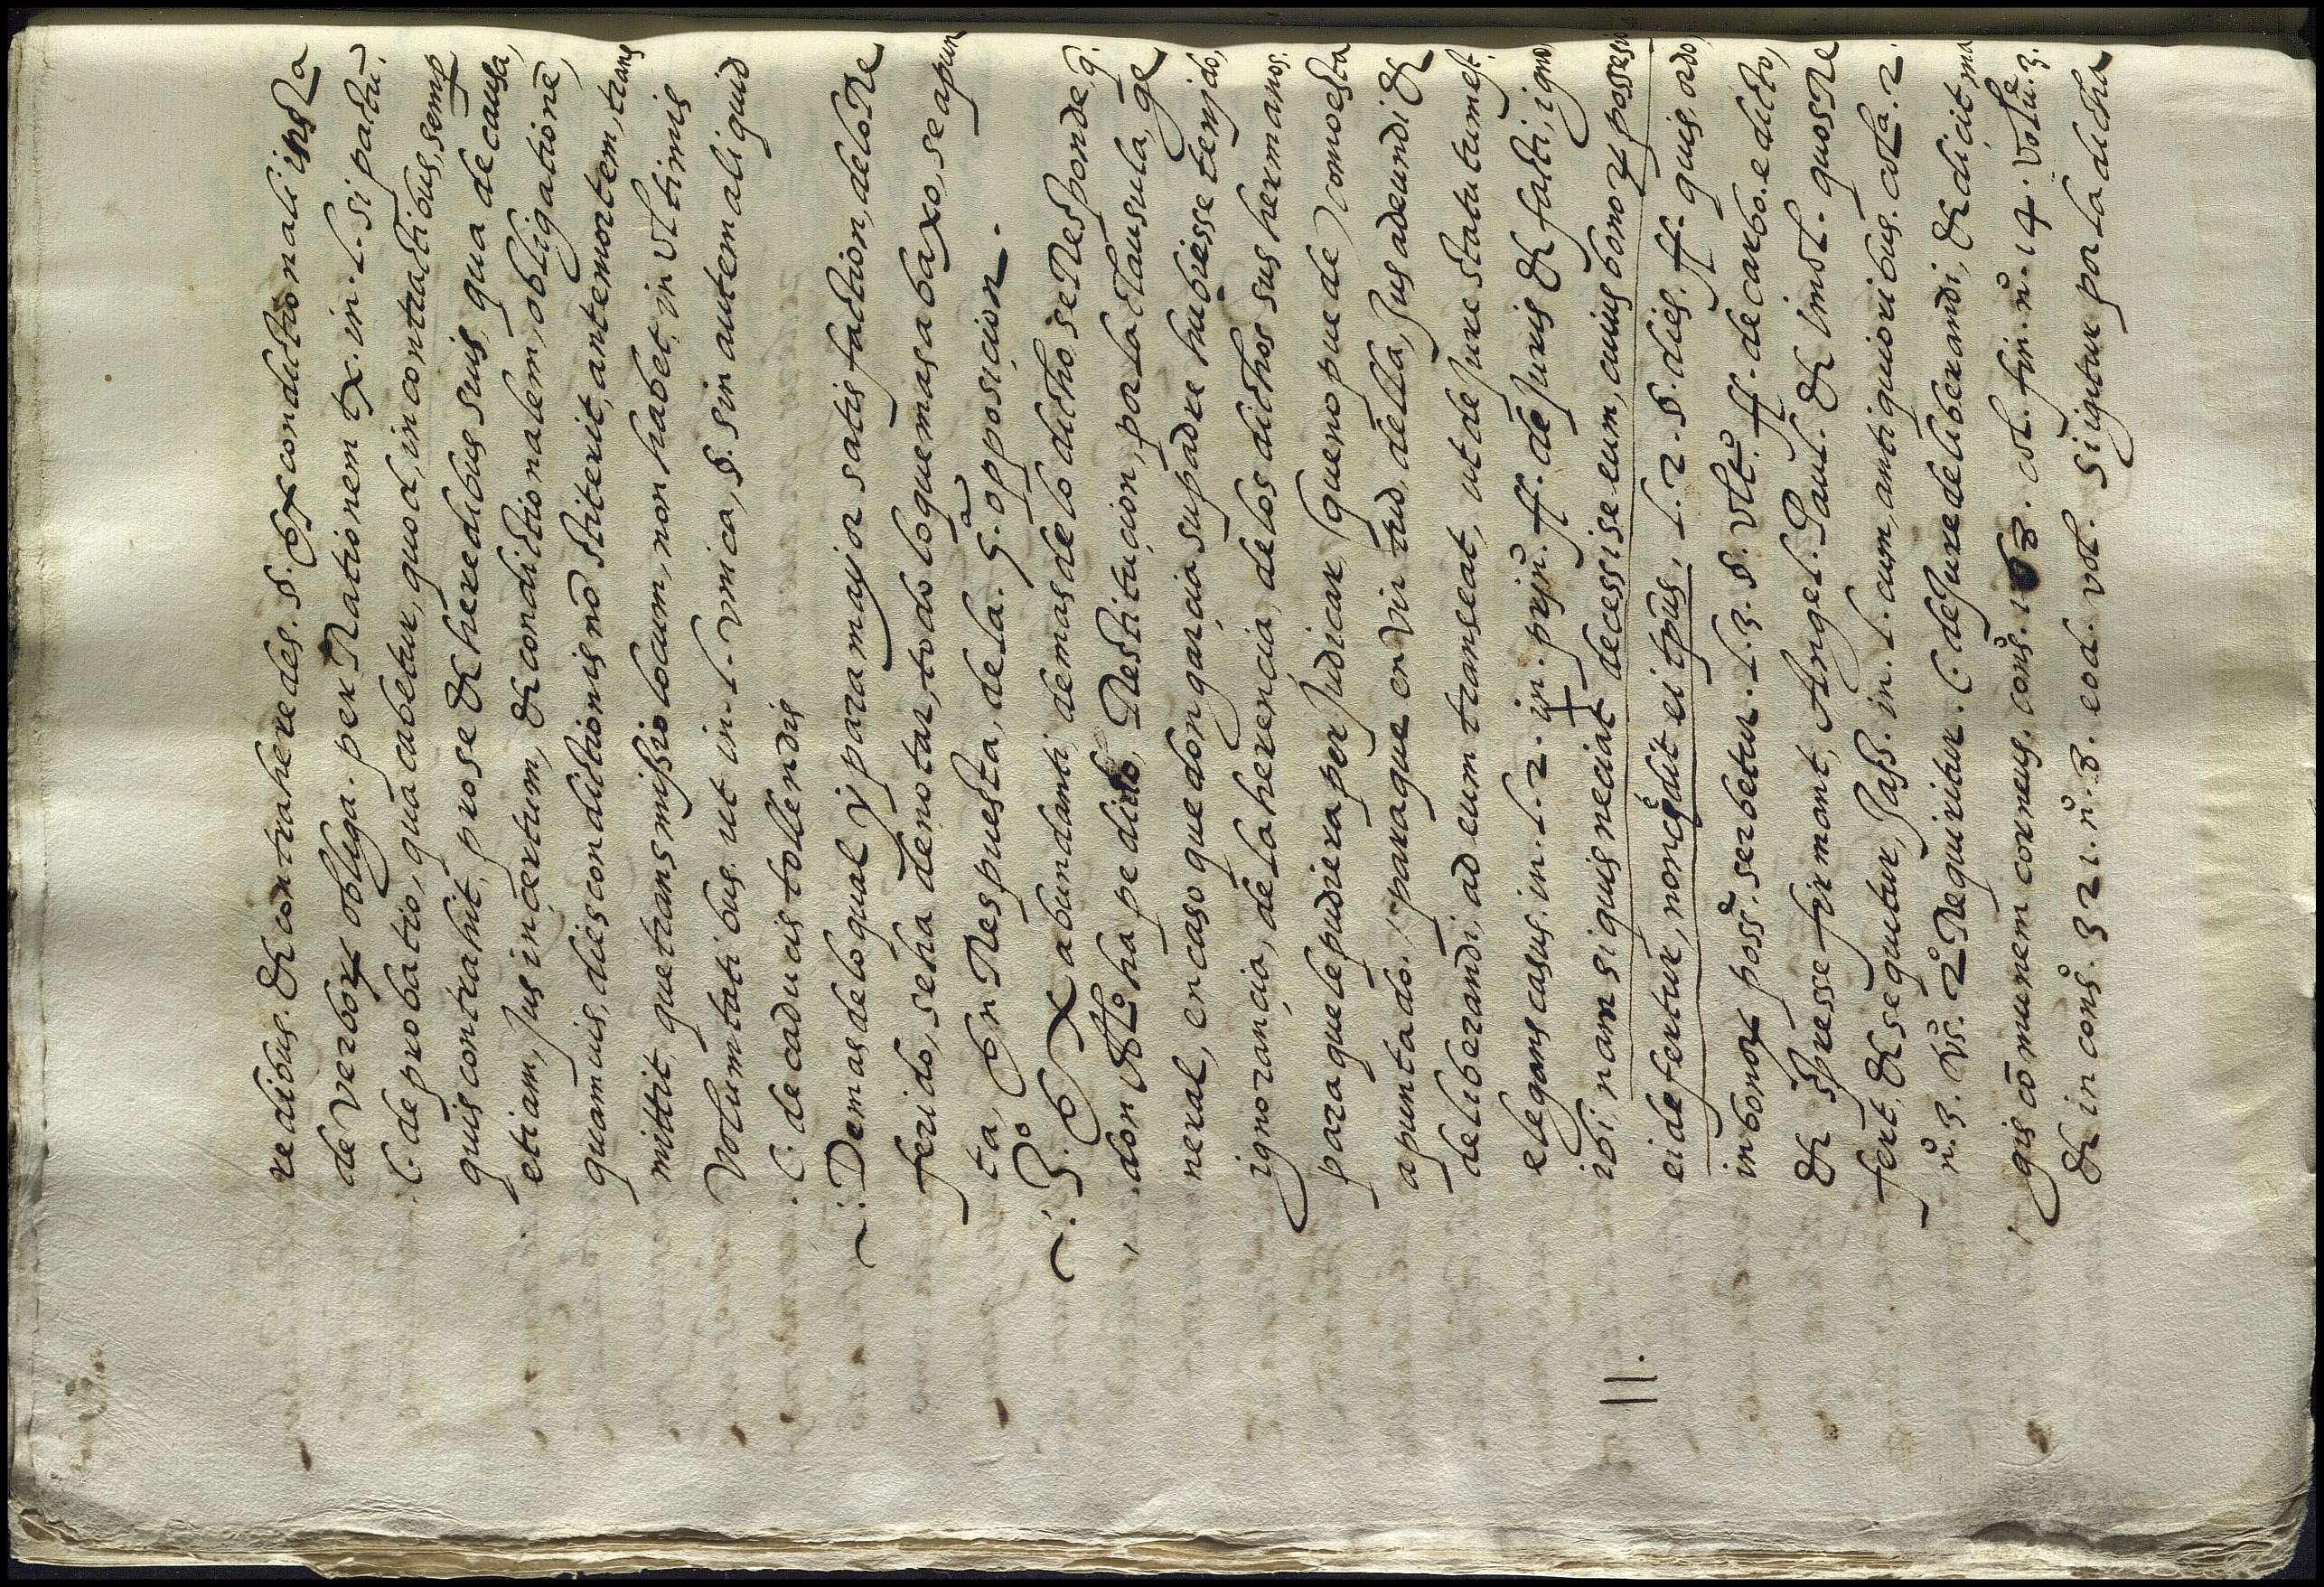 redibus. & contraheredes. §. ex conditionali insta
de verbor obliga. per Rationem tx. in. l. si pactu.
C. de probatio, qua cabetur, quod, in contractibus, semp
quis contrahit, pro se & heredibus suis, qua de causa,
etiam, Jus incertum, & conditionalem, obligatione,
quamuis, dies conditionis nō stiterit, ante mortem, trans
mittit, que transmissio locum, non habet, in vltimis
Volumtatibus. ut in. l. vnica, §. sin autem aliquid
. C. de caducis tollendis
Demas de lo qual y para mayor satisfaction, de lo Re
ferido, se ha de notar, todo lo que mas abaxo, se apun
ta, En Respuesta, de la. 5.ª opposicion.
3.º Ex abundanti, demas de lo dicho, se Responde, q.
don ha pedido, Restitucion, por la clausula, ge
neral, en caso que don garcia su padre hubiesse tenido,
ignorancia, de la herencia, de los dichos sus hermanos.
para que le pudiera perjudicar, que no puede, como esta
apuntado. paraque en virtud, della, Jus adeundi &
deliberandi, ad eum transeat, ut de Jure statutum est.
elegans casus. in. l. 2. in. prin. ff. de Juris & facti, igno
ibi, nam si quis nesciat decessise eum, cuius bonor possessio
ei defertur, non cedit ei tpus, l. 2. §. dies. ff. quis, ordo,
in bonor poss. serbetur. l. 3. §. vlt. ff. de carbo. edicto,
& Expresse firmant, Angel. Paul. & imol. quos Re
fert, & sequutur, Jass. in. l. cum, antiquioribus. cola. 2.
nº. 3. vs. 2º Requiritur. C. de Jure deliberandi, & dicit, ma
gis cōmunem corneus. cons. col. fin. nº. 14. volu. 3.
& in cons. 321. nº. 3. eod. vol. sigitur por la dicha
11.